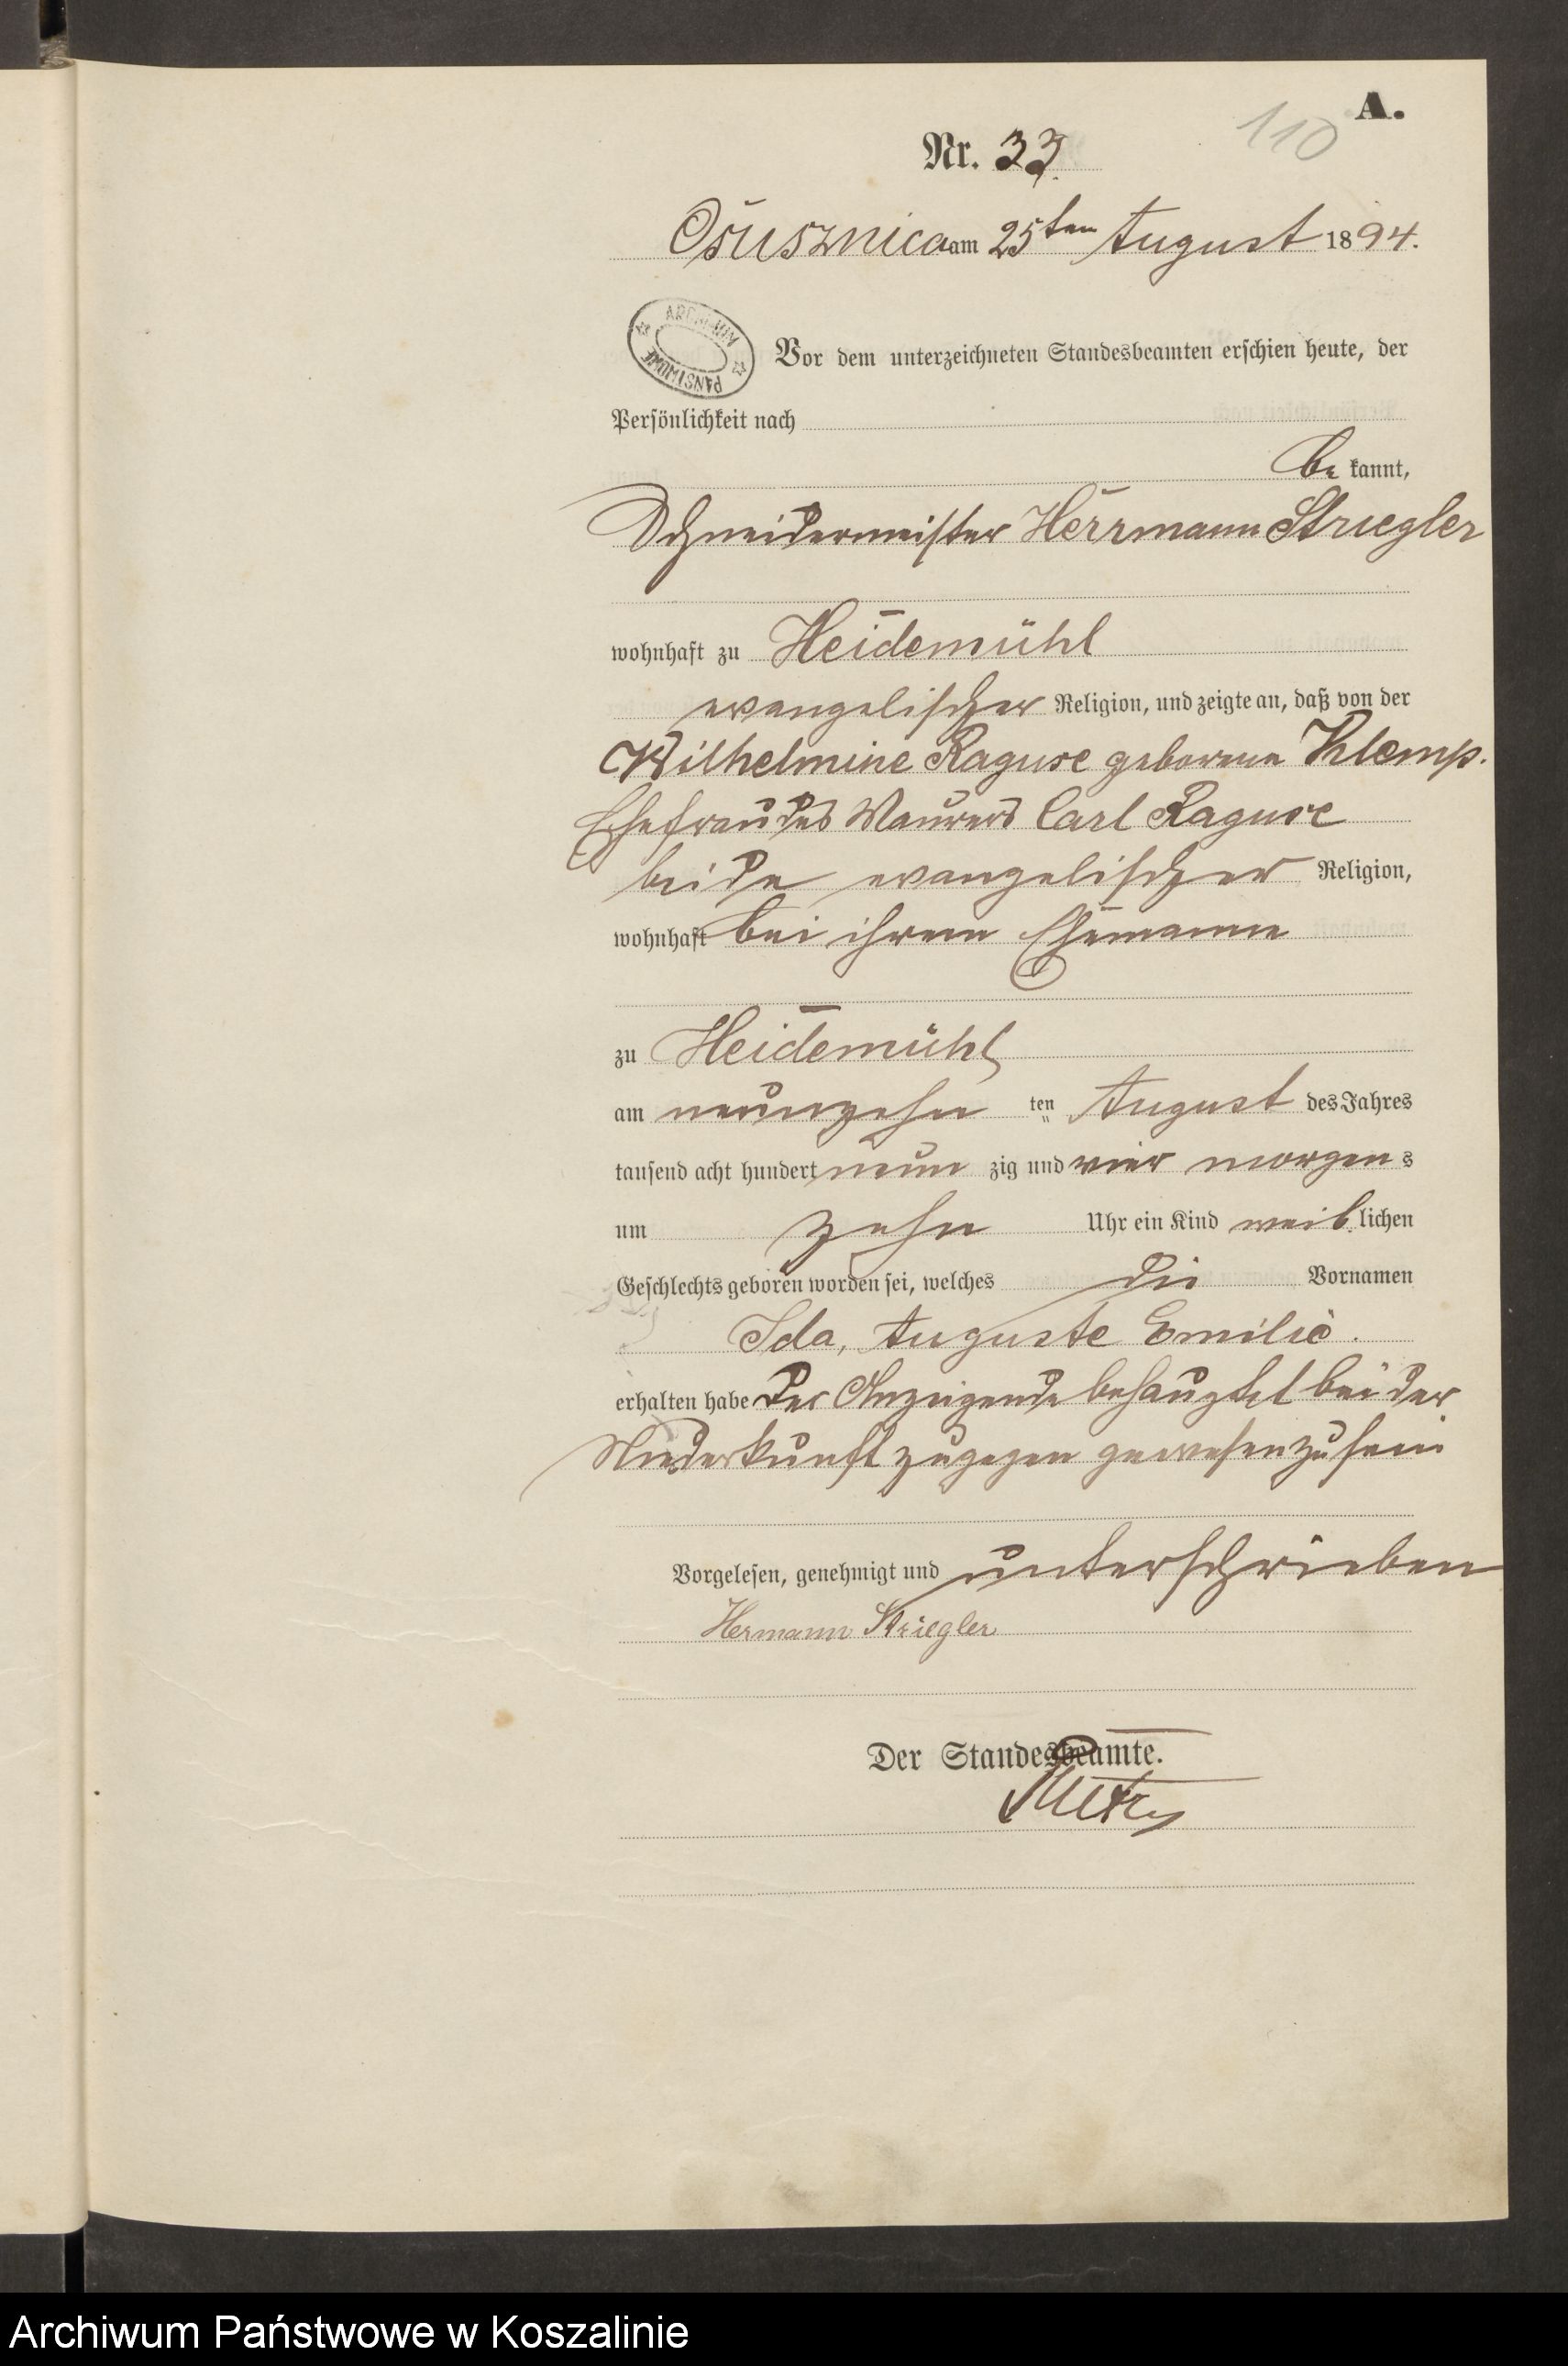 A.
110
Nr. 33.
Osusznica am 25ten August 1894.
ARCHIWUM PAŃSTWOWE
Vor dem unterzeichneten Standesbeamten erschien heute, der
Persönlichkeit nach
be kannt,
Schneidermeister Herrmann Striegler
wohnhaft zu Heidemühl
evangelischer Religion, und zeigte an, daß von der
Wilhelmine Raguse geborene Klemp.
Ehefrau des Maurers Carl Raguse
beide evangelischer Religion,
wohnhaft bei ihrem Ehemanne
zu Heidemühl
am neunzehn ten August des Jahres
tausend acht hundert neun zig und vier morgen s
um zehn Uhr ein Kind weib lichen
Geschlechts geboren worden sei, welches die Vornamen
Ida, Auguste Emilie.
erhalten habe Der Anzeigende behauptet bei der
Niederkunft zugegen gewesen zu sein
Vorgelesen, genehmigt und unterschrieben
Hermann Striegler
Der Standesbeamte.
Archiwum Państwowe w Koszalinie